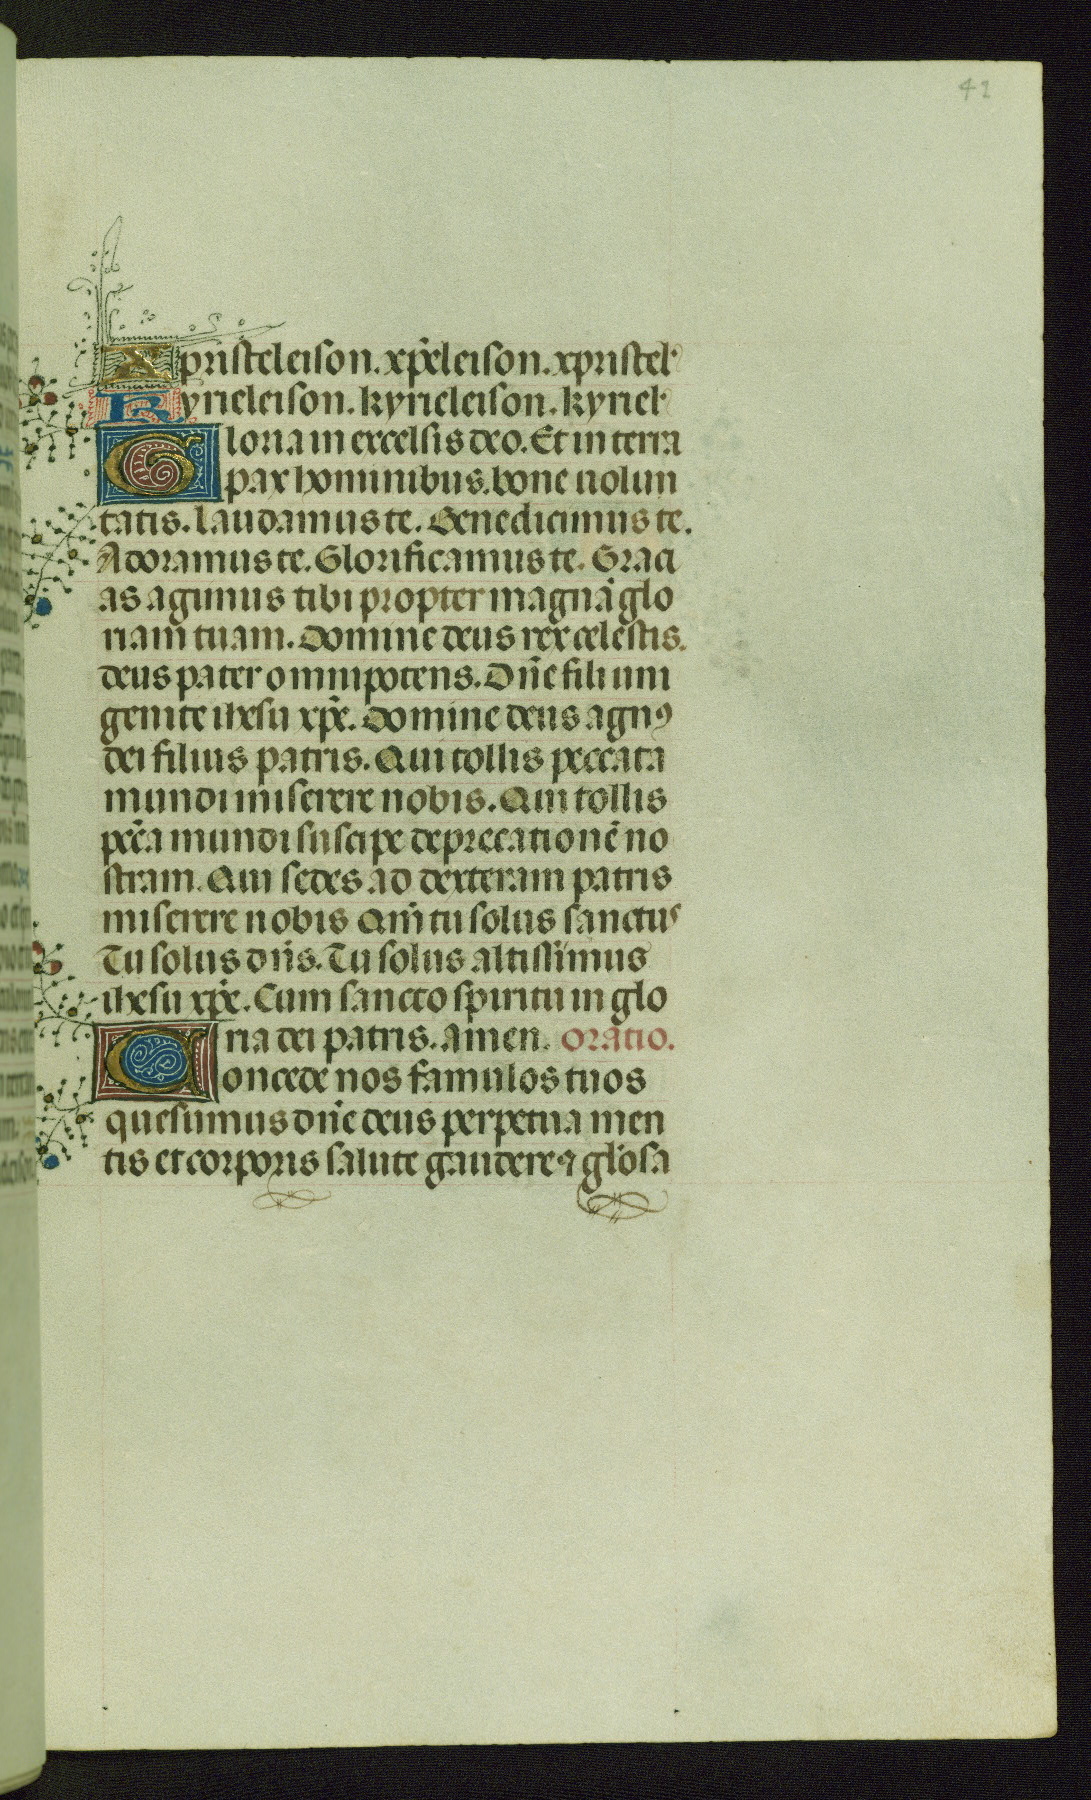 42
Xpristeleison. xp̄eleison. xpristel'
Kyrieleison. kyrieleison. kyriel'
Gloria in excelsis deo. Et in terra
pax hominibus. bone uolun
tatis. laudamus te. Benedicimus te.
Adoramus te. Glorificamus te. Graci
as agimus tibi propter magnā glo
riam tuam. Domine deus rex celestis.
deus pater omnipotens. Dn̄e fili uni
genite ihesu xp̄e. Domine deus agnꝰ
dei filius patris. Qui tollis peccata
mundi miserere nobis. Qui tollis
pc̄c̄a mundi suscipe deprecationē no
stram. Qui sedes ad dexteram patris
miserere nobis Qm̄ tu solus sanctus
Tu solus dn̄s. Tu solus altissimus
ihesu xp̄e. Cum sancto spiritu in glo
ria dei patris. Amen. Oratio.
Concede nos famulos tuos
quesumus dn̄e deus perpetua men
tis et corporis salute gaudere ⁊ gl'osa